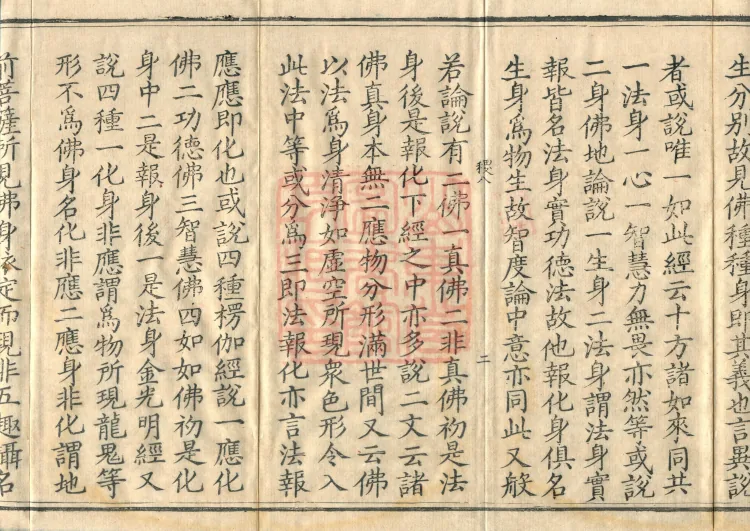 生分別故見佛種種身即其義也言異說
者或說唯一如此經云十方諸如來同共
一法身一心一智慧力無畏亦然等或說
二身佛地論說一生身二法身謂法身實
報皆名法身實功德法故他報化身俱名
生身為物生故智度論中意亦同此又般
若論說有二佛一真佛二非真佛初是法
身後是報化下經之中亦多說二文云諸
佛真身本無二應物分形滿世間又云佛
以法為身清淨如虛空所現衆色形令入
此法中等或分為三即法報化亦言法報
應應即化也或說四種楞伽經說一應化
佛二功德佛三智慧佛四如如佛初是化
身中二是報身後一是法身金光明經又
說四種一化身非應謂為物所現龍鬼等
形不為佛身名化非應二應身非化謂地
前菩薩所見佛身依定而現非五趣攝名
二